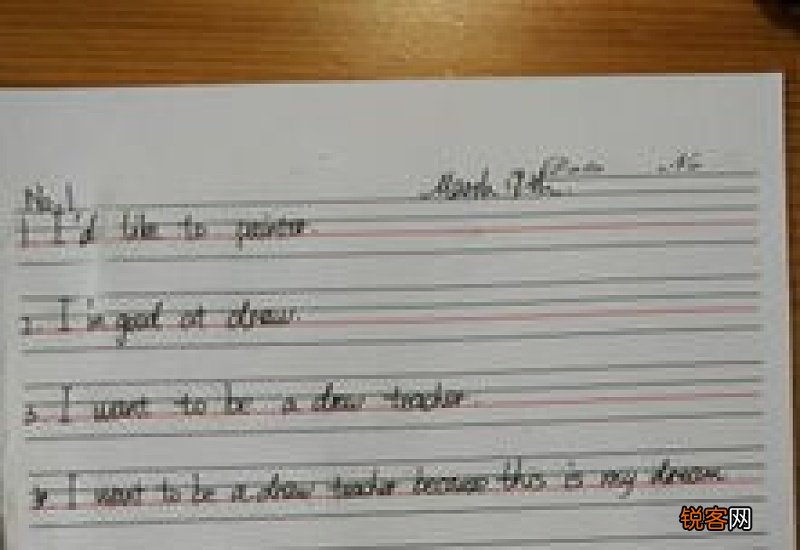 March. 17th.
No.1.
1 I'd like to painter.
2. I'm good at draw.
3. I want to be a draw teacher.
4. I want to be a draw teacher because this is my dream.
锐客网